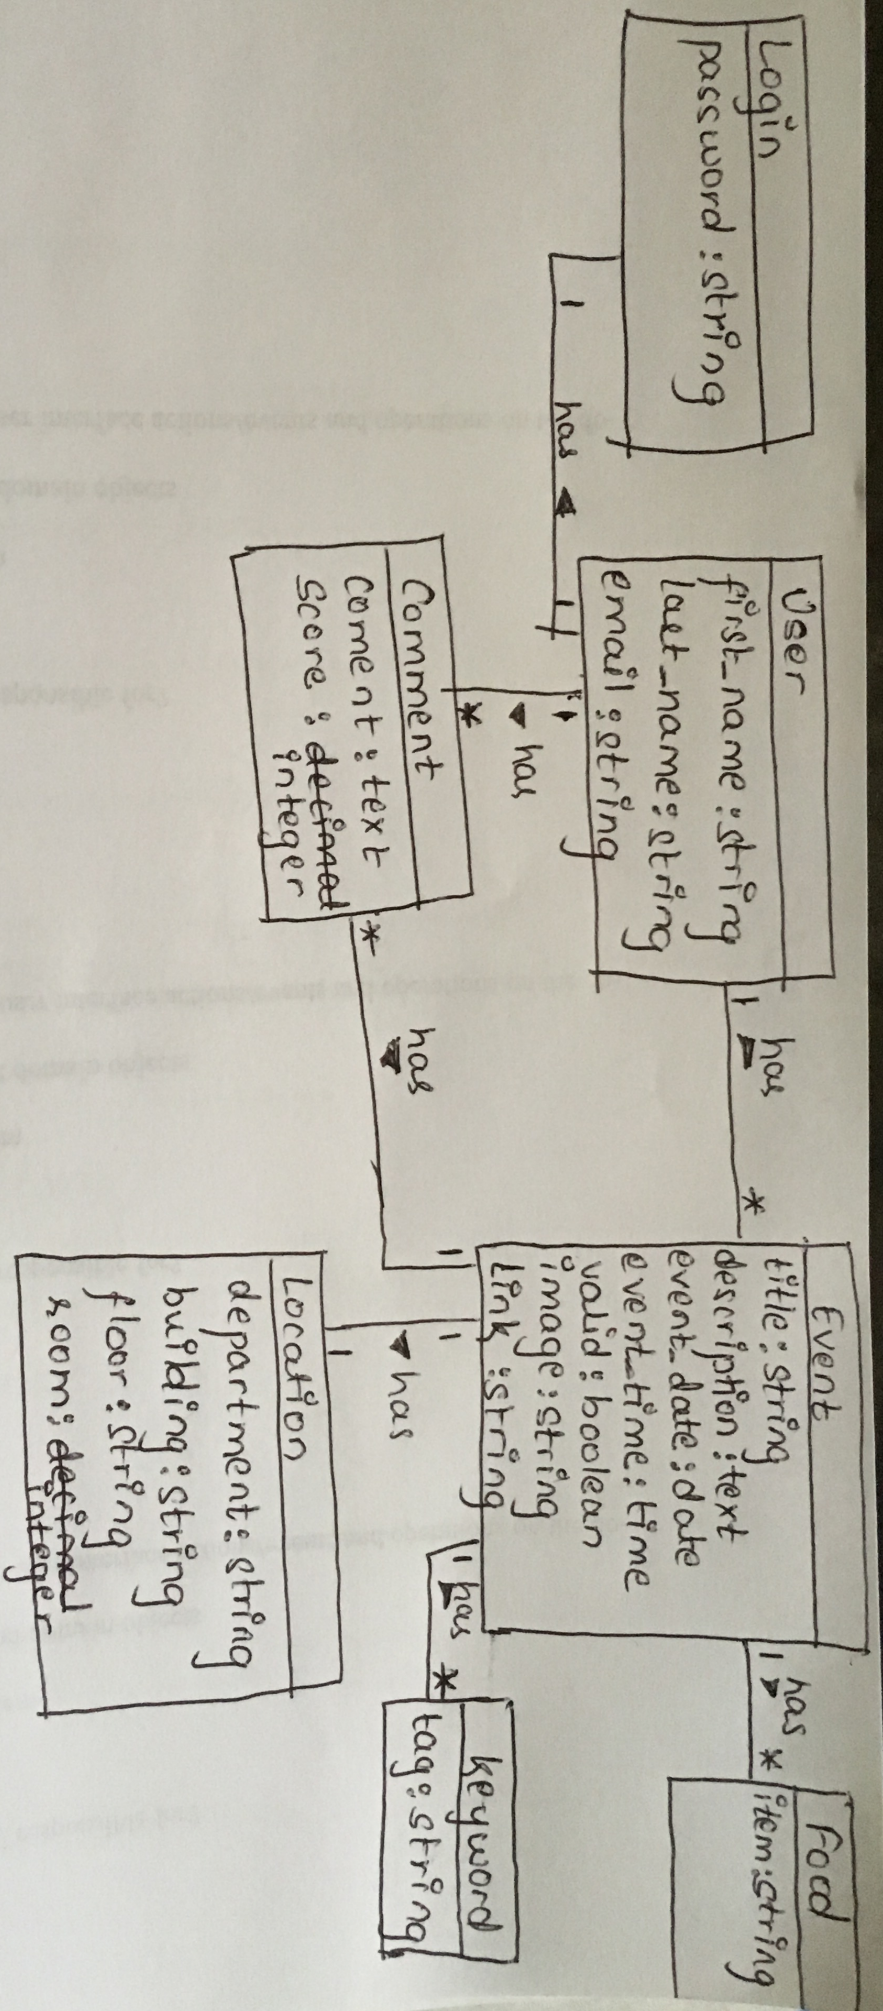 Login
password : string
1
has
1
User
first_name : string
last_name : string
email : string
1
has
*
1
has
*
Comment
coment : text
score : decimal
integer
*
has
1
Event
title : string
description : text
event_date : date
event_time : time
valid : boolean
image : string
Link : string
1
has
1
Location
department : string
building : string
floor : string
room : decimal
integer
1
has
*
keyword
tag : string
1
has
*
Food
item : string